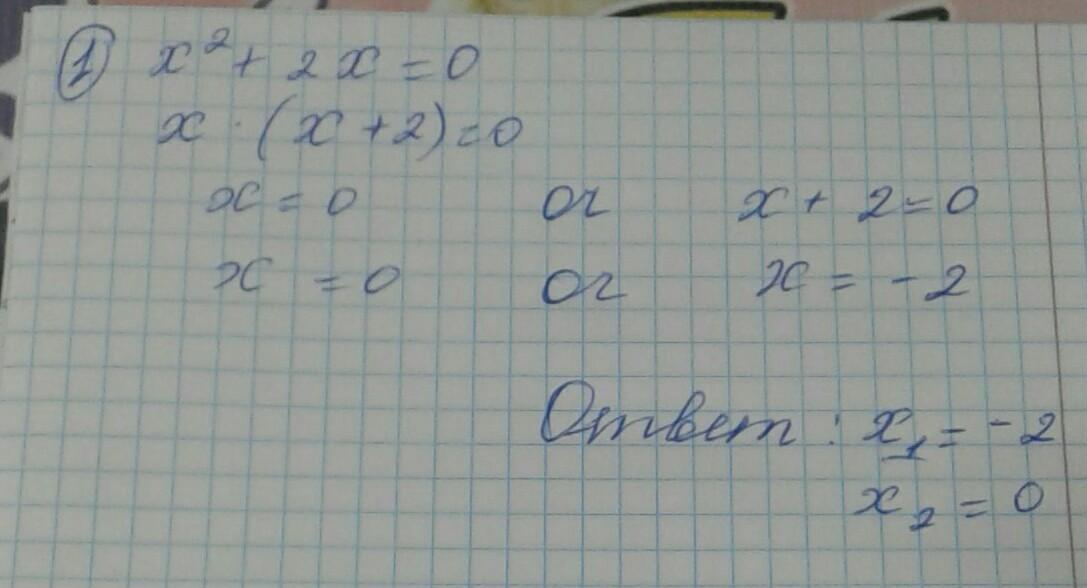 ① x² + 2x = 0
x · (x + 2) = 0
x = 0 or x + 2 = 0
x = 0 or x = -2
Ответ: x₁ = -2
x₂ = 0